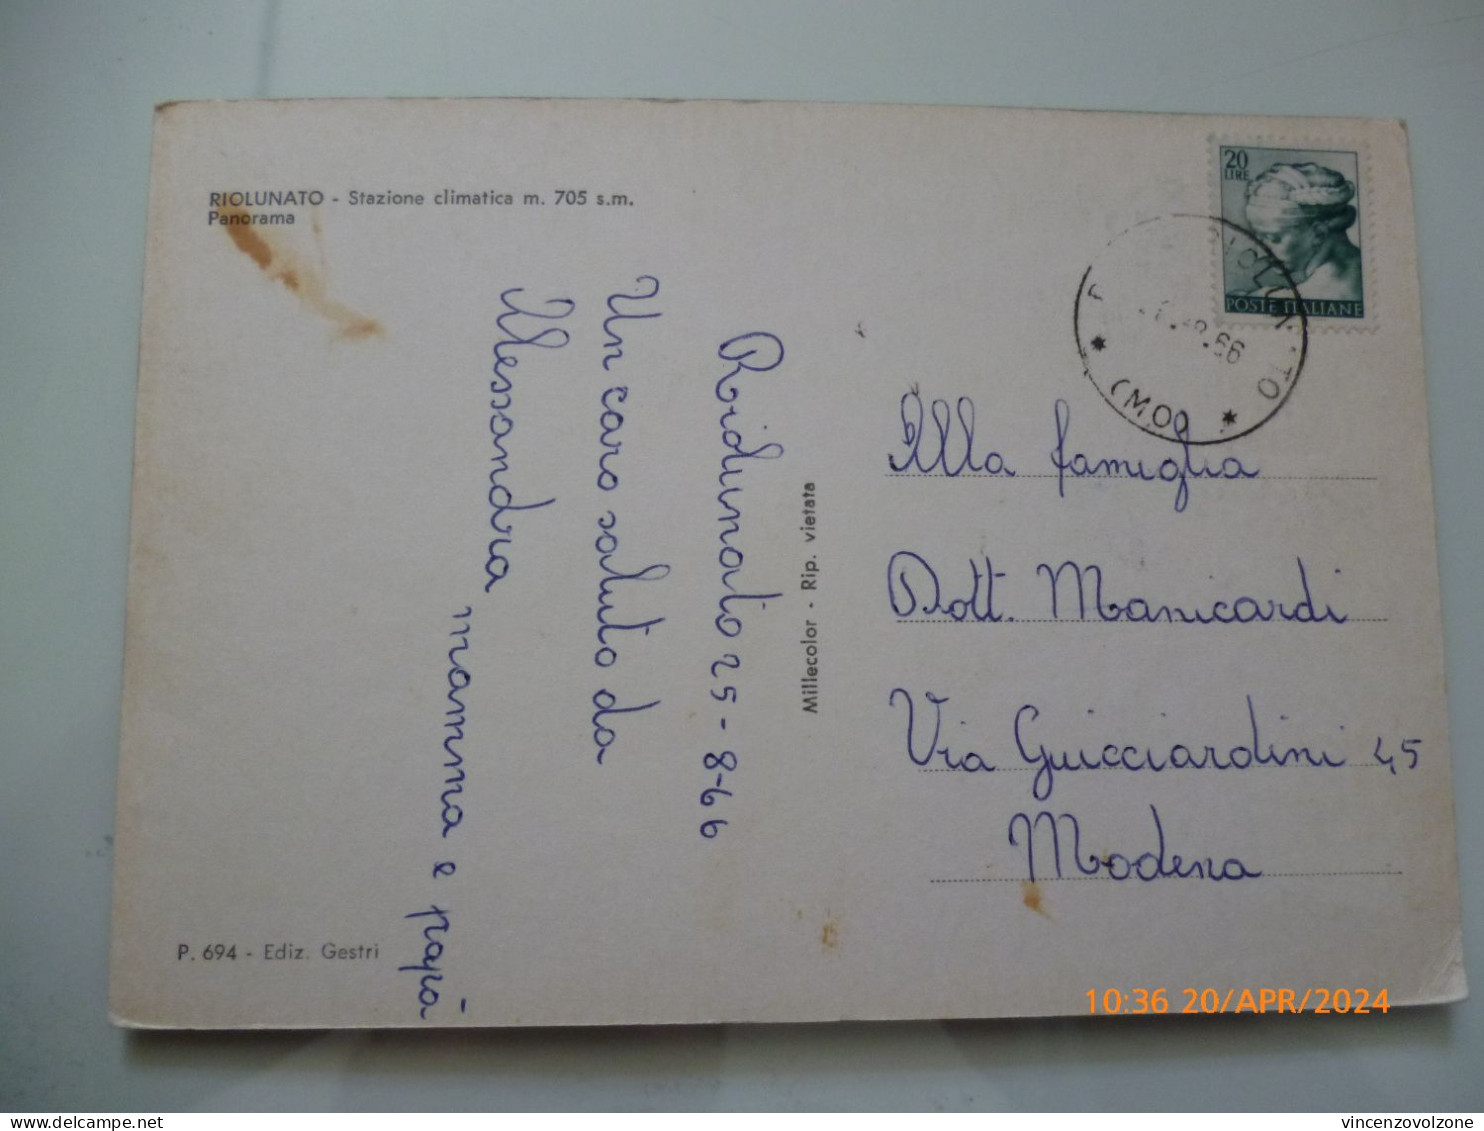 RIOLUNATO - Stazione climatica m. 705 s.m.
Panorama
Riolunato 25-8-66
Un caro saluto da
Alessandra
mamma e papà
P. 694 - Ediz. Gestri
Millecolor - Rip. vietata
20
LIRE
POSTE ITALIANE
8.66
(MO)
Alla famiglia
Dott. Manicardi
Via Guicciardini 45
Modena
10:36 20/APR/2024
delcampe.net
vincenzovolzone